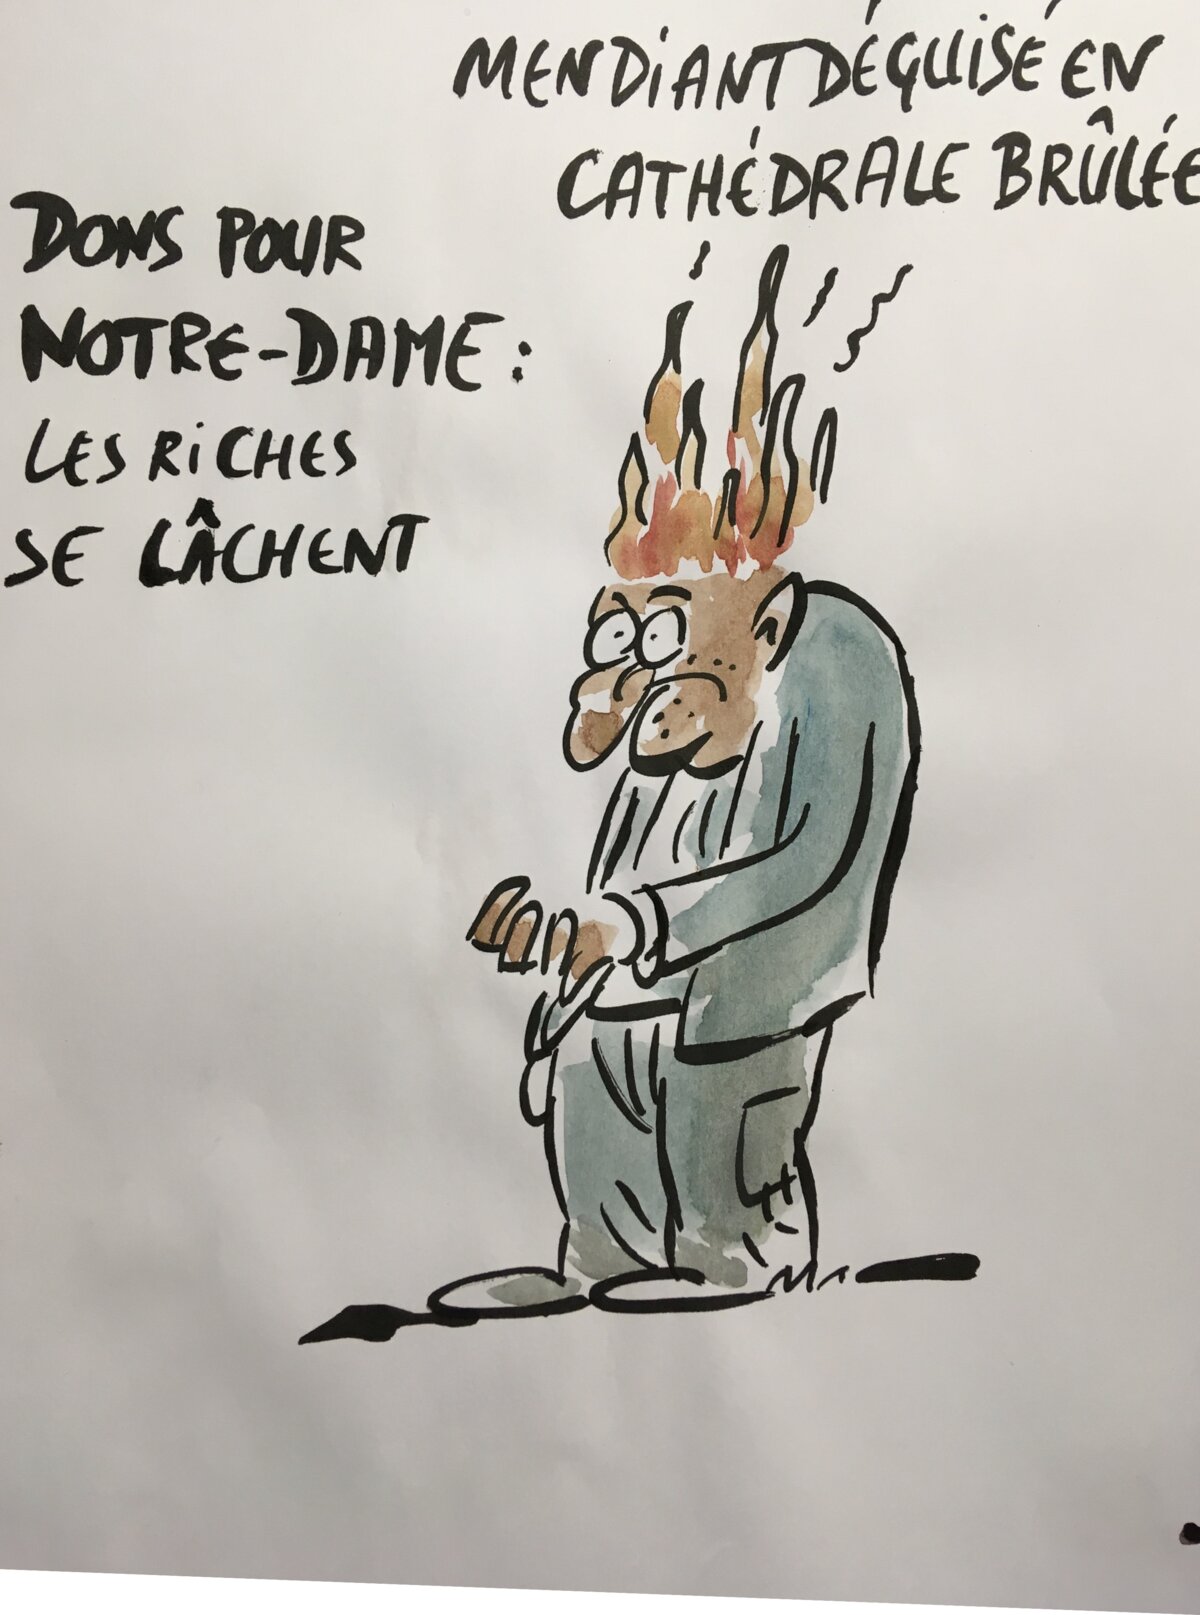 MENDIANT DÉGUISÉ EN
CATHÉDRALE BRÛLÉE
DONS POUR
NOTRE-DAME :
LES RICHES
SE LÂCHENT